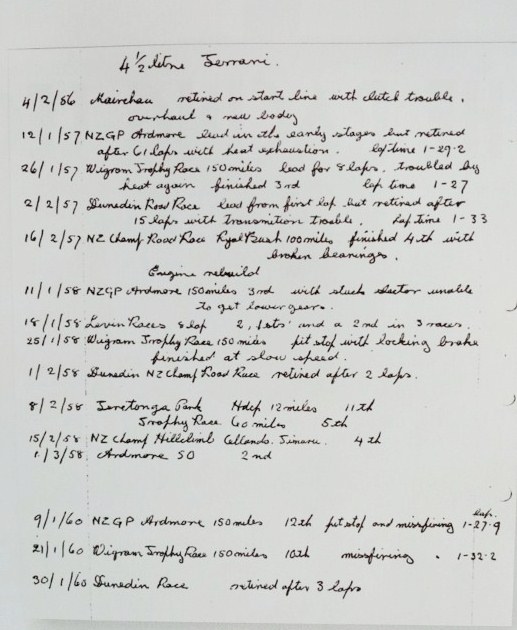 4 1/2 litre Ferrari.
4/2/56 Mairehau retired on start line with clutch trouble.
overhaul & new body
12/1/57 NZGP Ardmore lead in the early stages but retired
after 61 laps with heat exhaustion. lap time 1-29-2
26/1/57 Wigram Trophy Race 150 miles lead for 8 laps. troubled by
heat again finished 3rd lap time 1-27
2/2/57 Dunedin Road Race lead from first lap but retired after
15 laps with transmition trouble. Lap time 1-33
16/2/57 NZ Champ Road Race Ryal Bush 100 miles finished 4th with
broken bearings.
Engine rebuild
11/1/58 NZGP Ardmore 150 miles 3rd with stuck selector unable
to get lower gears.
18/1/58 Levin Races 8 lap 2, 1sts' and a 2nd in 3 races.
25/1/58 Wigram Trophy Race 150 miles pit stop with locking brake
finished at slow speed.
1/2/58 Dunedin NZ Champ Road Race retired after 2 laps.
8/2/58 Teretonga Park Hdcp 12 miles 11th
Trophy Race 60 miles 5th
15/2/58 NZ Champ Hillclimb Timaru. 4th
1/3/58 Ardmore 50 2nd
9/1/60 NZGP Ardmore 150 miles 12th pit stop and missfiring 1-27-9
21/1/60 Wigram Trophy Race 150 miles 10th missfiring . 1-32-2
30/1/60 Dunedin Race retired after 3 laps